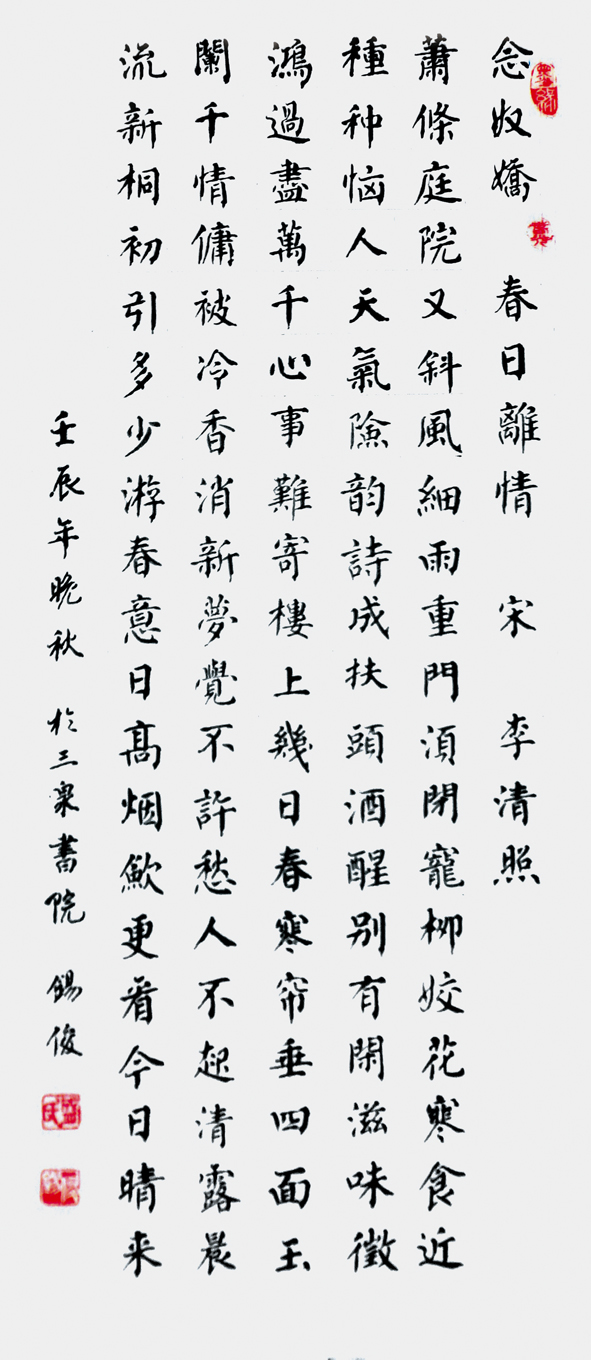 念奴嬌 春日離情 宋 李清照
蕭條庭院又斜風細雨重門湏閉寵柳姣花寒食近
種种恼人天氣險韵詩成扶頭酒醒别有閑滋味徵
鴻過盡萬千心事難寄樓上幾日春寒帘垂四面玉
闌千情傭被冷香消新夢覺不許愁人不起清露晨
流新桐初引多少游春意日髙烟歛更看今日晴来
壬辰年晚秋 於三衆書院 錫俊